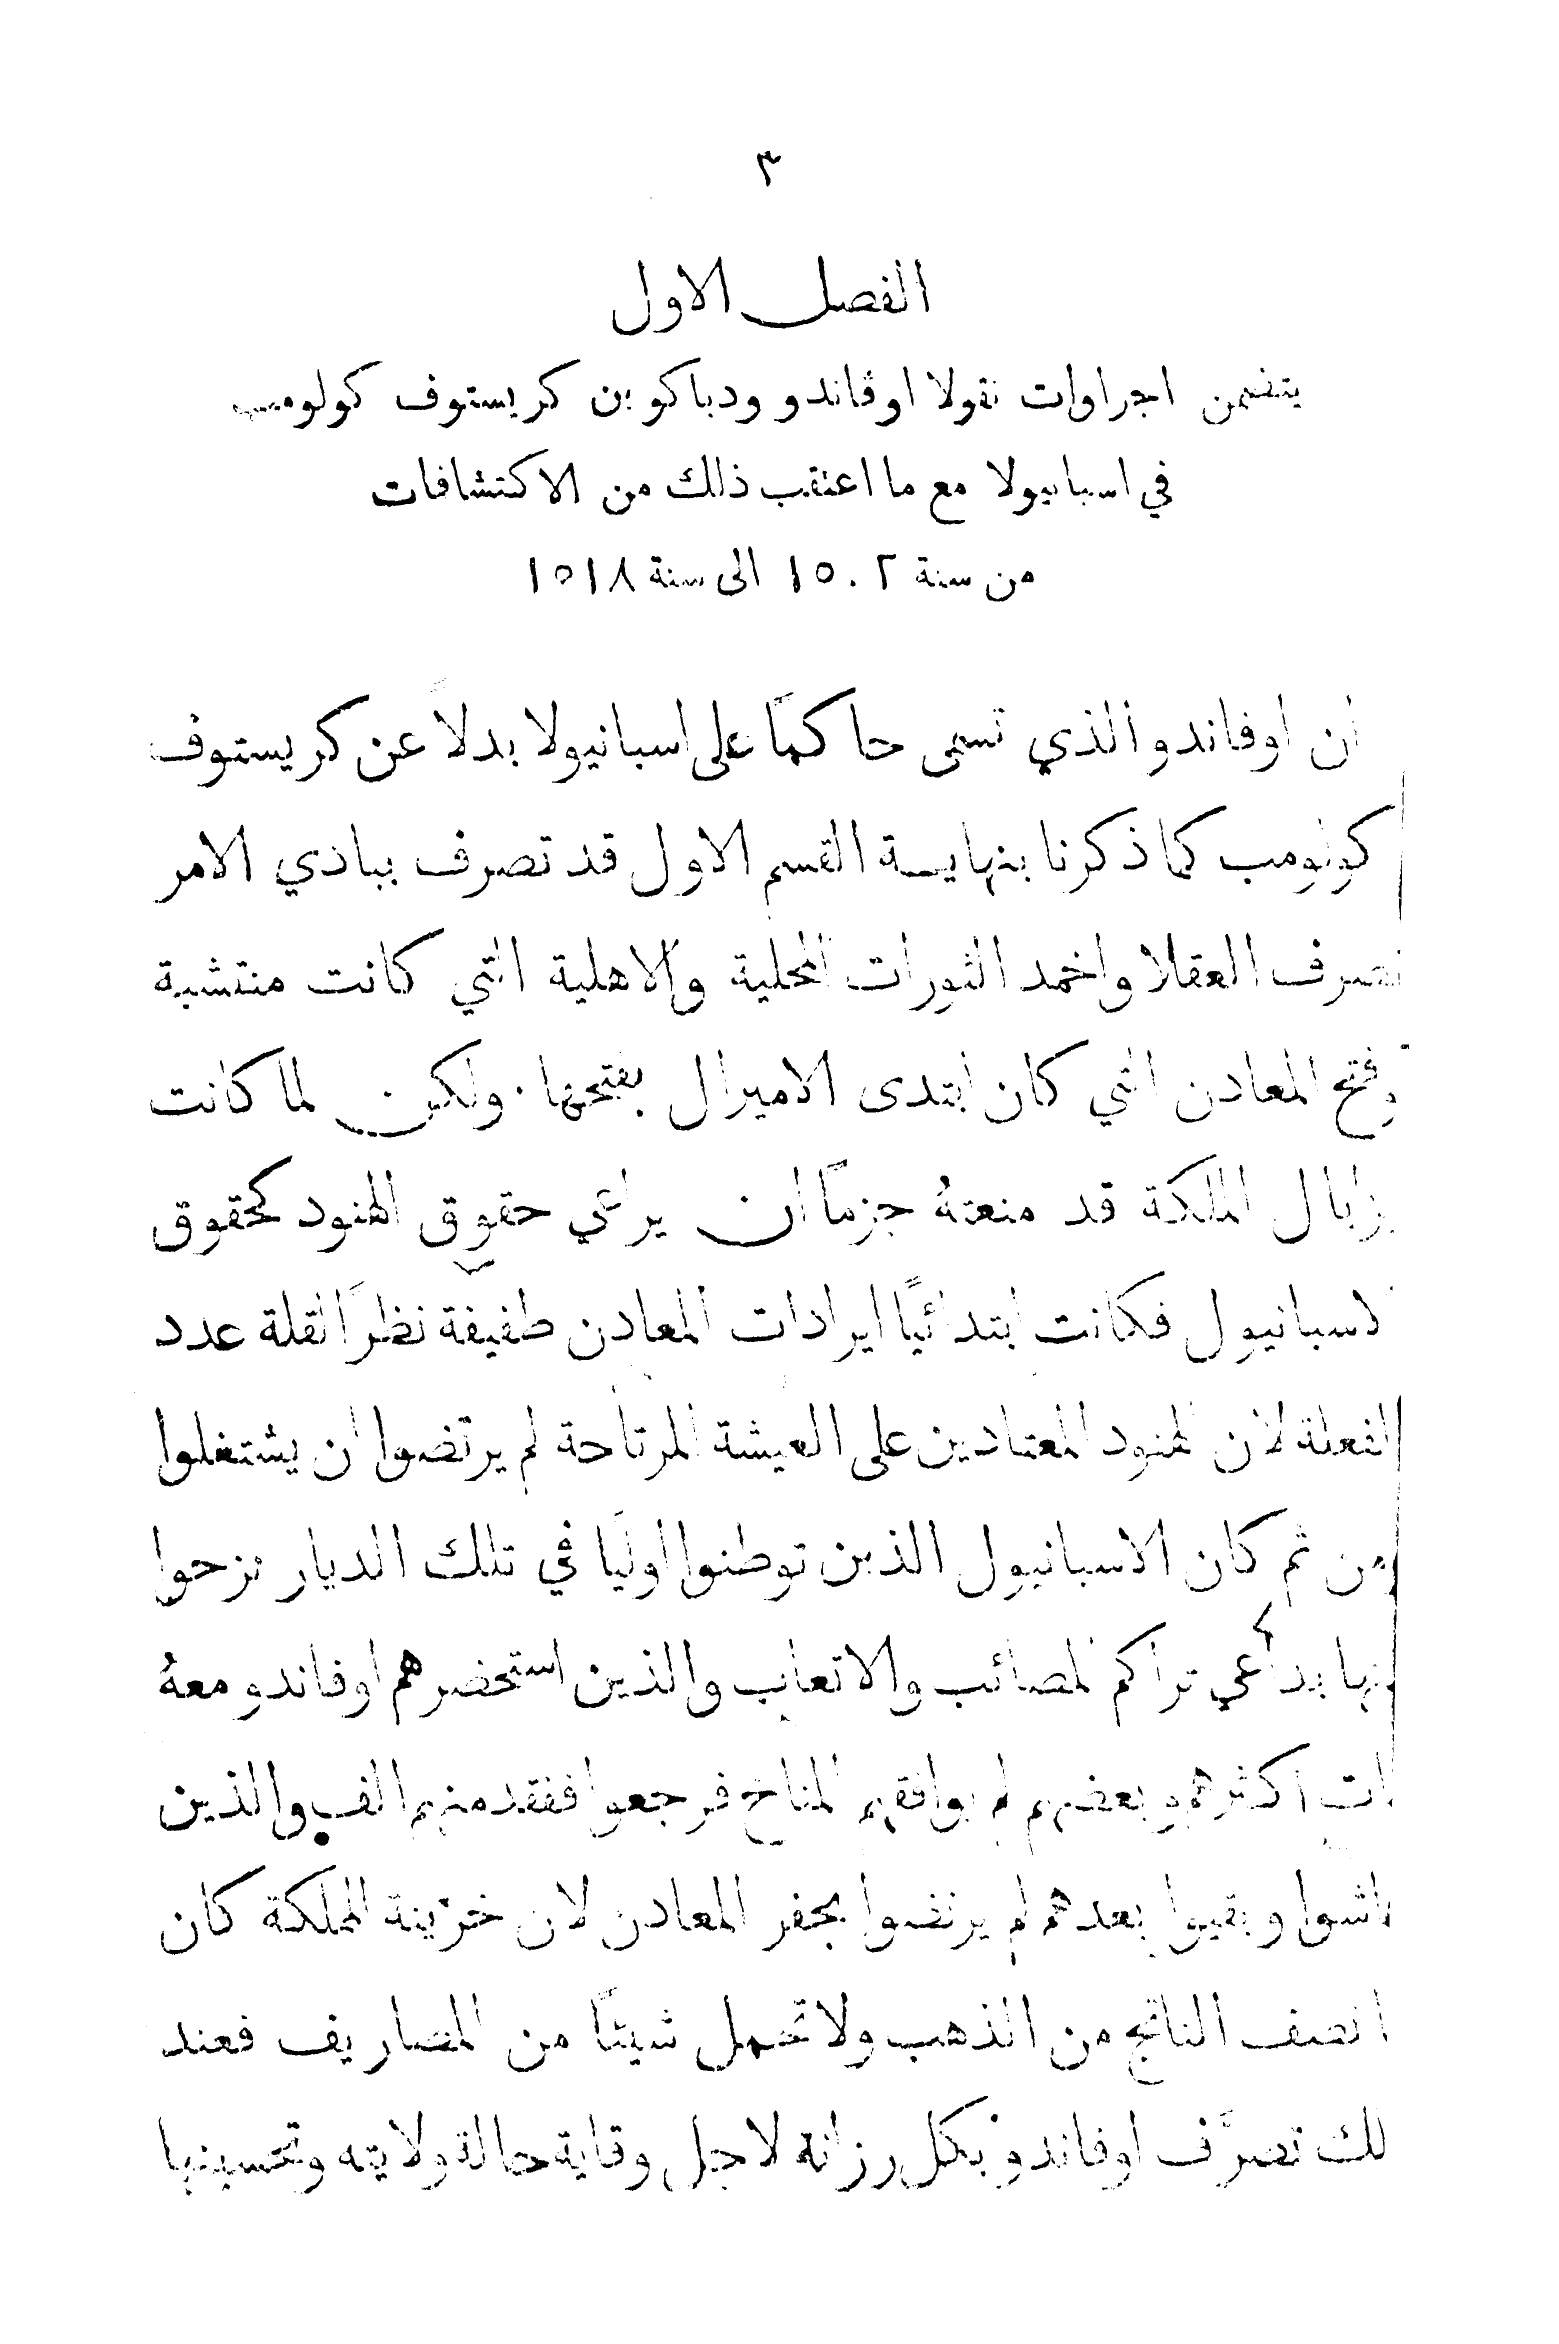 ٣
الفصل الاول
يتضمن اجراوات نقولا اوڤاندو ودياكو بن كريستوف كولومب
في اسبانيولا مع ما اعتقب ذلك من الاكتشافات
من سنة ١٥٠٢ الى سنة ١٥١٨
ان اوفاندو الذي تسمى حاكمًا على اسبانيولا بدلاً عن كريستوف
كولومب كما ذكرنا بنهاية القسم الاول قد تصرف ببادي الامر
تصرف العقلا واخمد الثورات المحلية والاهلية التي كانت منتشبة
وفتح المعادن التي كان ابتدى الاميرال بفتحها. ولكن لما كانت
يزابال الملكة قد منعتهُ جزمًا ان يراعي حقوق الهنود كحقوق
لاسبانيول فكانت ابتدائيًا ايرادات المعادن طفيفة نظرًا لقلة عدد
الفعلة لان الهنود المعتادين على العيشة المرتاحة لم يرتضوا ان يشتغلوا
ومن ثم كان الاسبانيول الذين توطنوا اوليًا في تلك الديار نزحوا
منها بداعي تراكم المصائب والاتعاب والذين استحضرهم اوفاندو معهُ
ات اكثرهم وبعضهم لم يوافقهم المناخ فرجعوا ففقد منهم الف والذين
اشوا وبقيوا بعدهم لم يرتضوا بحفر المعادن لان خزينة المملكة كان
ا نصف الناتج من الذهب ولا تحمل شيئًا من المصاريف فعند
لك تصرَّف اوفاندو بكل رزانة لاجل وقاية حالة ولايته وتحسينها